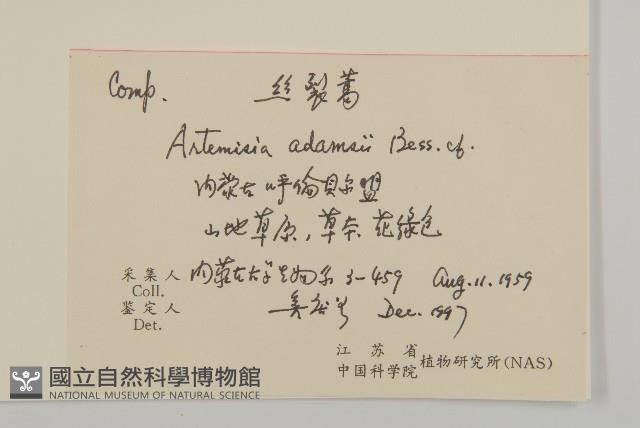 Comp. 丝裂蒿
Artemisia adamsii Bess. cf.
内蒙古 呼倫貝尔盟
山地草原，草本 花绿色
采集人 内蒙古大学生物系 3-459 Aug. 11. 1959
Coll.
鉴定人 Dec. 1997
Det.
江苏省
中国科学院 植物研究所(NAS)
國立自然科學博物館
NATIONAL MUSEUM OF NATURAL SCIENCE